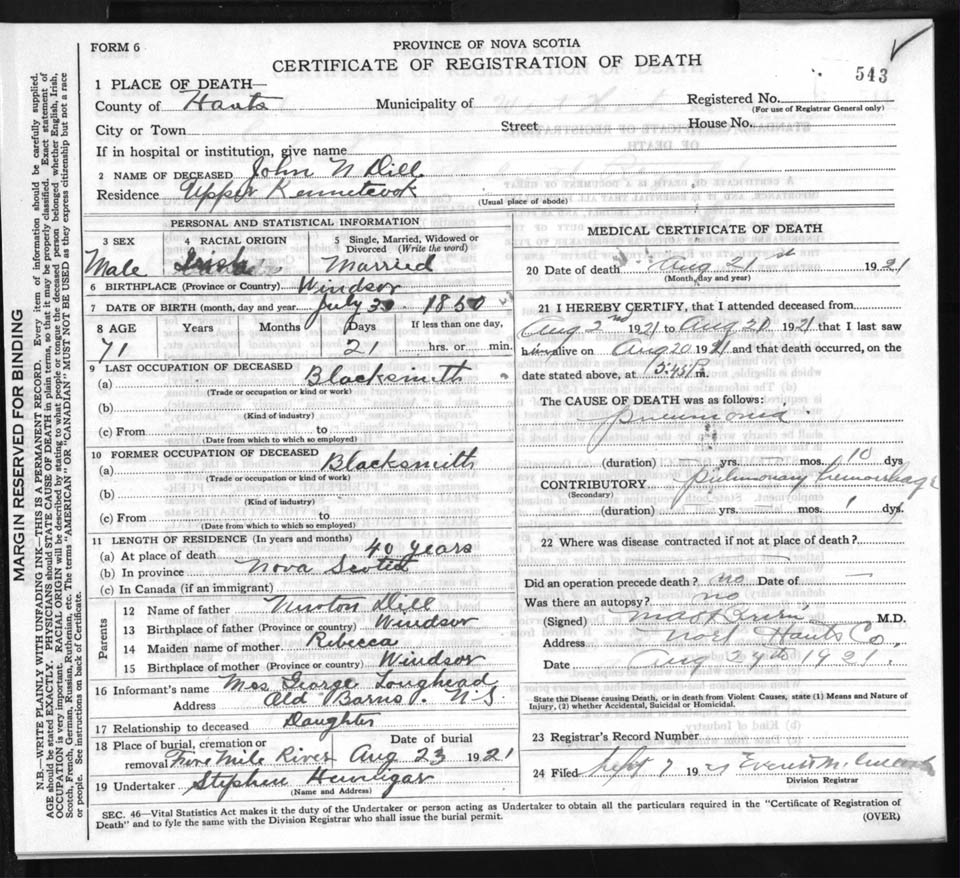 FORM 6
PROVINCE OF NOVA SCOTIA
CERTIFICATE OF REGISTRATION OF DEATH
543
1 PLACE OF DEATH—
County of Hants Municipality of Registered No.
(For use of Registrar General only)
City or Town Street House No.
If in hospital or institution, give name
2 NAME OF DECEASED John N Dill
Residence Upper Kennetcook
(Usual place of abode)
PERSONAL AND STATISTICAL INFORMATION
3 SEX 4 RACIAL ORIGIN 5 Single, Married, Widowed or Divorced (Write the word)
Male Irish Married
6 BIRTHPLACE (Province or Country) Windsor
7 DATE OF BIRTH (month, day and year) July 30 1850
8 AGE Years Months Days If less than one day,
71 21 hrs. or min.
9 LAST OCCUPATION OF DECEASED
(a) Blacksmith
(Trade or occupation or kind of work)
(b)
(Kind of industry)
(c) From to
(Date from which to which so employed)
10 FORMER OCCUPATION OF DECEASED
(a) Blacksmith
(Trade or occupation or kind of work)
(b)
(Kind of industry)
(c) From to
(Date from which to which so employed)
11 LENGTH OF RESIDENCE (In years and months)
(a) At place of death 40 years
(b) In province Nova Scotia
(c) In Canada (if an immigrant)
Parents
12 Name of father Newton Dill
13 Birthplace of father (Province or country) Windsor
14 Maiden name of mother Rebecca
15 Birthplace of mother (Province or country) Windsor
16 Informant's name Mrs George Loughead
Address Old Barns N.S
17 Relationship to deceased Daughter
18 Place of burial, cremation or removal Five Mile River Date of burial Aug 23 1921
19 Undertaker Stephen Hennigar
(Name and Address)
MEDICAL CERTIFICATE OF DEATH
20 Date of death Aug 21st 1921
(Month, day and year)
21 I HEREBY CERTIFY, that I attended deceased from
Aug 2nd 1921 to Aug 21 1921 that I last saw
him alive on Aug 20 1921 and that death occurred, on the
date stated above, at m.
The CAUSE OF DEATH was as follows:
pneumonia
(duration) yrs. mos. 10 dys
CONTRIBUTORY pulmonary hemorrhage
(Secondary)
(duration) yrs. mos. 1 dys.
22 Where was disease contracted if not at place of death?
Did an operation precede death? no Date of —
Was there an autopsy? no
(Signed) M.D.
Address Noel Hants Co.
Date Aug 24th 1921.
State the Disease causing Death, or in death from Violent Causes, state (1) Means and Nature of
Injury, (2) whether Accidental, Suicidal or Homicidal.
23 Registrar's Record Number
24 Filed Sept 7 1921 Everett
Division Registrar
SEC. 46—Vital Statistics Act makes it the duty of the Undertaker or person acting as Undertaker to obtain all the particulars required in the "Certificate of Registration of
Death" and to fyle the same with the Division Registrar who shall issue the burial permit.
(OVER)
MARGIN RESERVED FOR BINDING
N.B.—WRITE PLAINLY WITH UNFADING INK—THIS IS A PERMANENT RECORD. Every item of information should be carefully supplied.
AGE should be stated EXACTLY. PHYSICIANS should STATE CAUSE OF DEATH in plain terms, so that it may be properly classified. Exact statement of
OCCUPATION is very important. RACIAL ORIGIN will be described by stating to what people or tongue the deceased person belonged whether English, Irish,
Scotch, French, German, Russian, Ruthenian, etc. The terms "AMERICAN" OR "CANADIAN" MUST NOT BE USED as they express citizenship but not a race
or people. See instructions on back of Certificate.